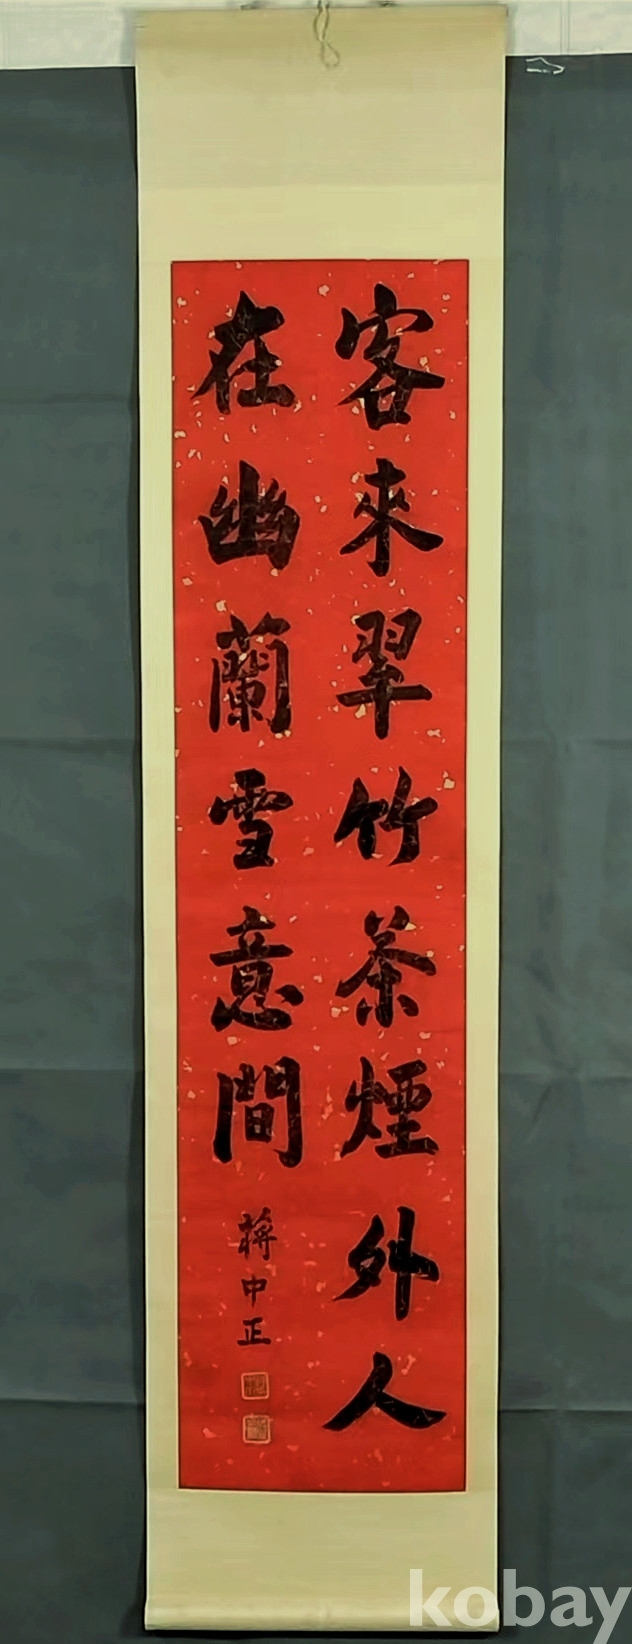 客來翠竹茶煙外人
在幽蘭雪意間
蔣中正
kobay